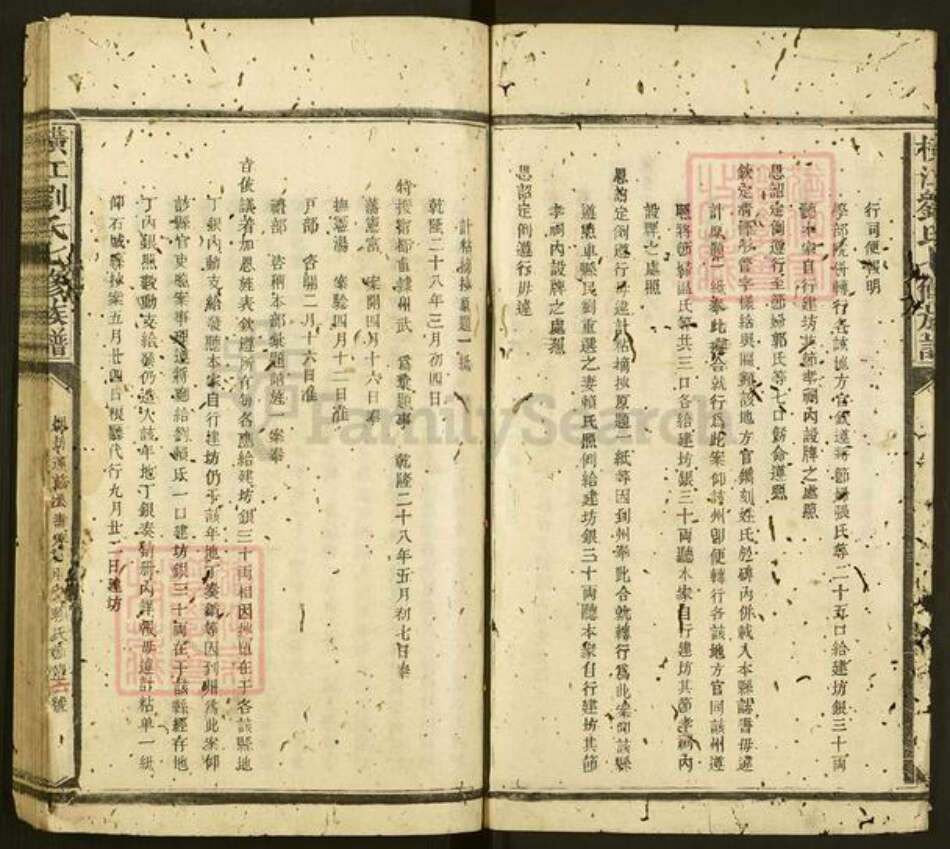 行司便知明
學部院併轉行各該地方官欽遵將節婦張氏等二十五口給建坊銀三十両
聽本家自行建坊其節孝祠內設牌之處照
恩詔定例遵行至節婦郭氏等七口飭命遵照
欽定清標彤管字樣給與匾額該地方官鐫刻姓氏於碑內併載入本縣誌書毋違
計原題一紙奉此擬合就行為此案仰該州卽便轉行各該地方官同該州遵
照將節婦溫氏等共三口各給建坊銀三十両聽本家自行建坊其節孝祠內
設牌之處照
恩詔定例遵行毋違計粘摘抄原題一紙等因到州奉此合就轉行為此案仰該縣
遵照車縣民劉重選之妻賴氏照例給建坊銀三十両聽本家自行建坊其節
孝祠內設牌之處照
恩詔定例遵行毋違
計粘摘抄原題一紙
乾隆二十八年三月初四日
特授 直隸州武 為 題事 乾隆二十八年五月初七日奉
藩憲富 案開四月十六日奉
撫憲湯 案驗四月十二日准
戸部 咨開二月十六日准
禮部 咨稱本部彙題 一案奉
旨依議着加恩旌表欽遵所有每名應給建坊銀三十両相因地頭在于各該縣地
丁銀內動支給發聽本家自行建坊仍于該年地丁奏銷等因到州為此案仰
該縣官吏照案事理遵將應給劉賴氏一口建坊銀三十両在于該縣經存地
丁內銀照數動支給發仍造入該年地丁銀奏銷冊內詳報毋違計粘單一紙
仰石城縣抄案五月廿四日 代行九月廿二日建坊
橫江劉氏七修族譜
橫江劉氏七修族譜